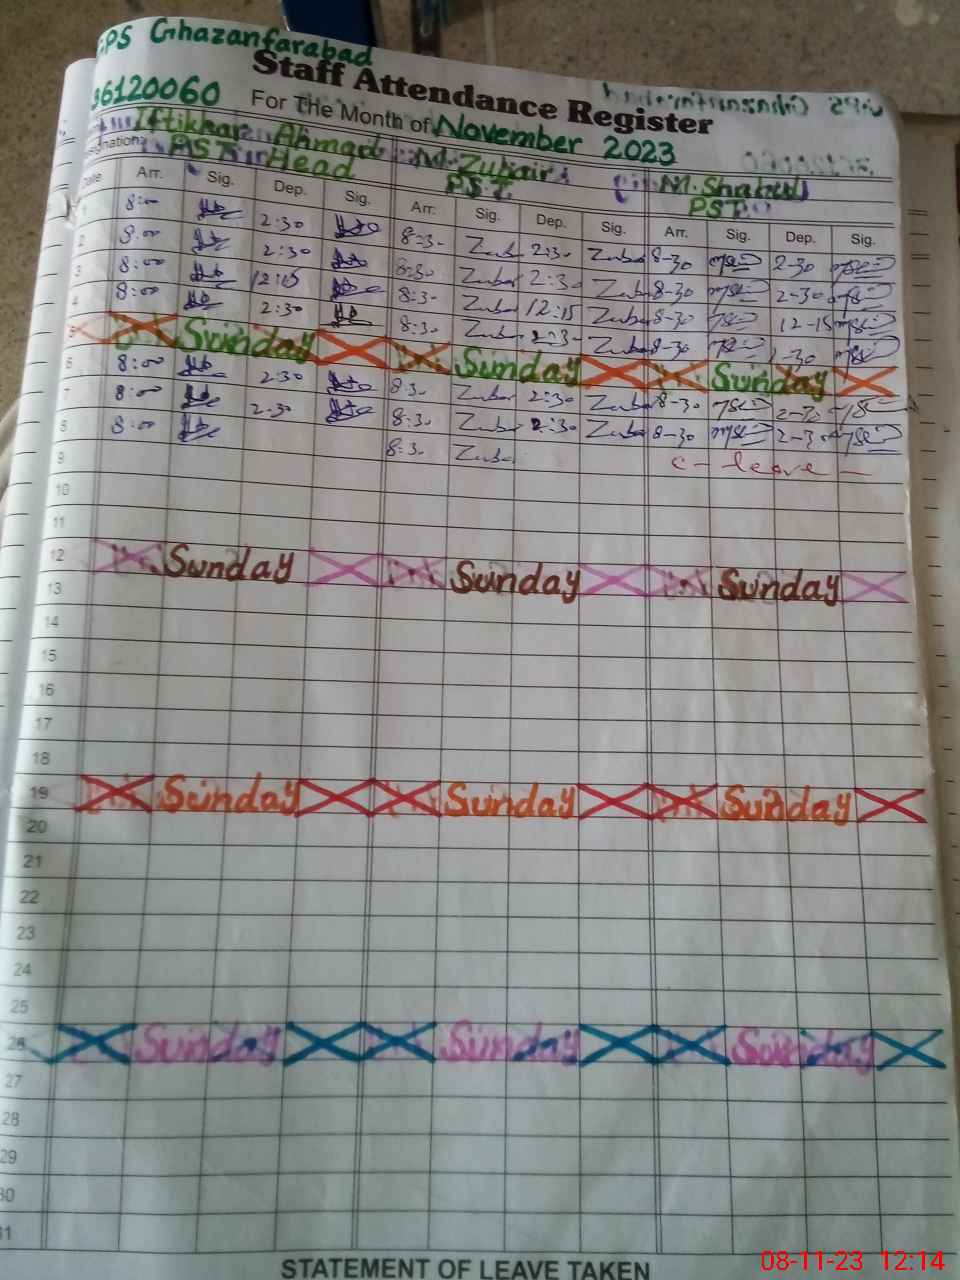 GPS Ghazanfarabad
Staff Attendance Register
36120060
For The Month of November 2023
Iftikhar Ahmad M. Zubair M. Shahid
Designation PST Head PST PST
Date Arr. Sig. Dep. Sig. Arr. Sig. Dep. Sig. Arr. Sig. Dep. Sig.
1 8:00 2:30 8:30 Zubair 2:30 Zubair 8-30 2-30
2 8:00 2:30 8:30 Zubair 2:30 Zubair 8-30 2-30
3 8:00 12:15 8:30 Zubair 12:15 Zubair 8-30 12-15
4 8:00 2:30 8:30 Zubair 2:30 Zubair 8-30
5 Sunday Sunday Sunday
6 8:00 2:30 8:30 Zubair 2:30 Zubair 8-30 2-30
7 8:00 2:30 8:30 Zubair 2:30 Zubair 8-30 2-30
8 8:00 8:30 Zubair c - leave -
9
10
11
12 Sunday Sunday Sunday
13
14
15
16
17
18
19 Sunday Sunday Sunday
20
21
22
23
24
25
26 Sunday Sunday Sunday
27
28
29
30
31
STATEMENT OF LEAVE TAKEN
08-11-23 12:14